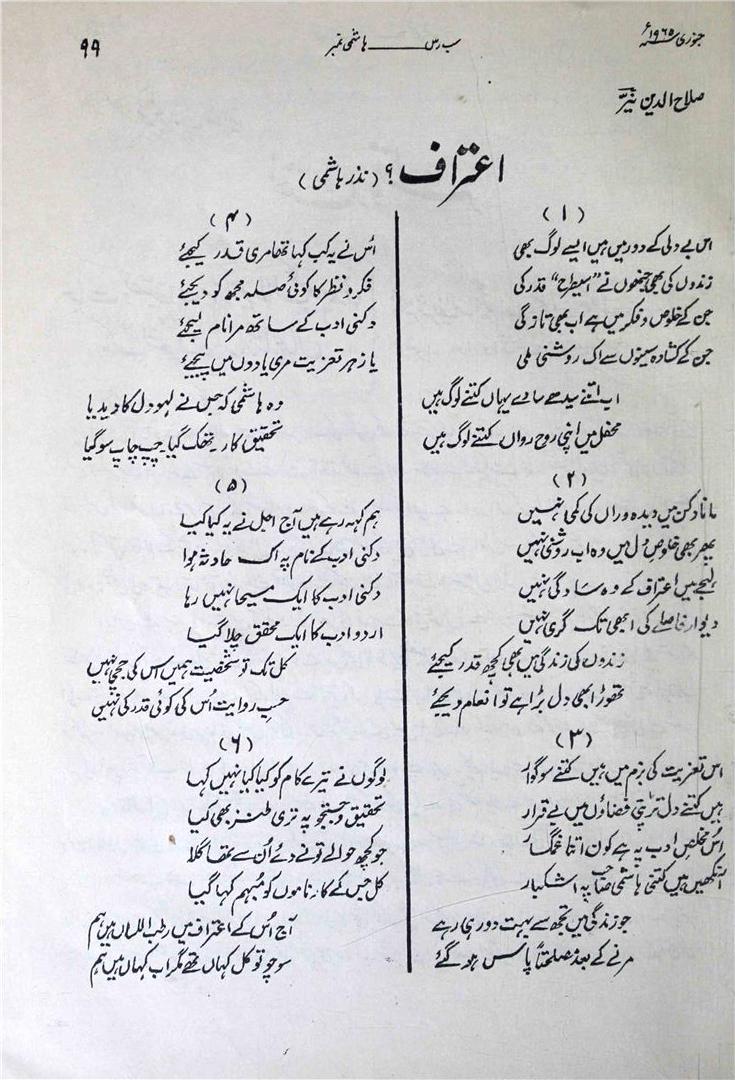 جنوری ۱۹۶۵ء
سب رس ــــــ ہاشمی نمبر
۹۹
صلاح الدین نیّر
اعتراف؟ (نذر ہاشمی)
(۱)
اس بے دلی کے دور میں ہیں ایسے لوگ بھی
زندوں کی بھی جنھوں نے "اسیطرح" قدر کی
جن کے خلوص و فکر میں ہے اب بھی تازگی
جن کے کشادہ سینوں سے اک روشنی ملی
اب اتنے سیدھے سادے یہاں کتنے لوگ ہیں
محفل میں اپنی روح رواں کتنے لوگ ہیں
(۲)
مانا دکن میں دیدہ وراں کی کمی نہیں
پھر بھی خلوص دل میں وہ اب روشنی نہیں
لہجے میں اعتراف کے وہ سادگی نہیں
دیوار فاصلے کی ابھی تک گری نہیں
زندوں کی زندگی میں بھی کچھ قدر کیجئے
تھوڑا بھی دل بڑا ہے تو انعام دیجئے
(۳)
اس تعزیت کی بزم میں ہیں کتنے سوگوار
ہیں کتنے دل تڑپتی فضاؤں میں بے قرار
اس مخلصِ ادب پہ ہے کون اتنا غمگسار
آنکھیں ہیں کتنی ہاشمی صاحب پہ اشکبار
جو زندگی میں تجھ سے بہت دور ہی رہے
مرنے کے بعد مصلحتاً پاس ہو گئے
(۴)
اُس نے یہ کب کہا تھا مری قدر کیجئے
فکر و نظر کا کوئی صلہ مجھ کو دیجئے
دکنی ادب کے ساتھ مرا نام لیجئے
یا زہر تعزیت مری یادوں میں پیجئے
وہ ہاشمی کہ جس نے لہو دل کا دیدیا
تحقیق کار تھک گیا۔ چپ چاپ سو گیا
(۵)
ہم کہہ رہے ہیں آج اجل نے یہ کیا کیا
دکنی ادب کے نام پر اک حادثہ ہوا
دکنی ادب کا ایک مسیحا نہیں رہا
اردو ادب کا ایک محقق چلا گیا
کل تک تو شخصیت ہمیں اس کی جچی نہیں
حسبِ روایت اُس کی کوئی قدر کی نہیں
(۶)
لوگوں نے تیرے کام کو کیا کیا نہیں کہا
تحقیق و جستجو پہ تری طنز بھی کیا
جو کچھ حوالے تو نے دئے اُن سے تھا گلا
کل جس کے کارناموں کو مبہم کہا گیا
آج اُس کے اعتراف میں رطب اللساں ہیں ہم
سوچو تو کل کہاں تھے مگر اب کہاں ہیں ہم